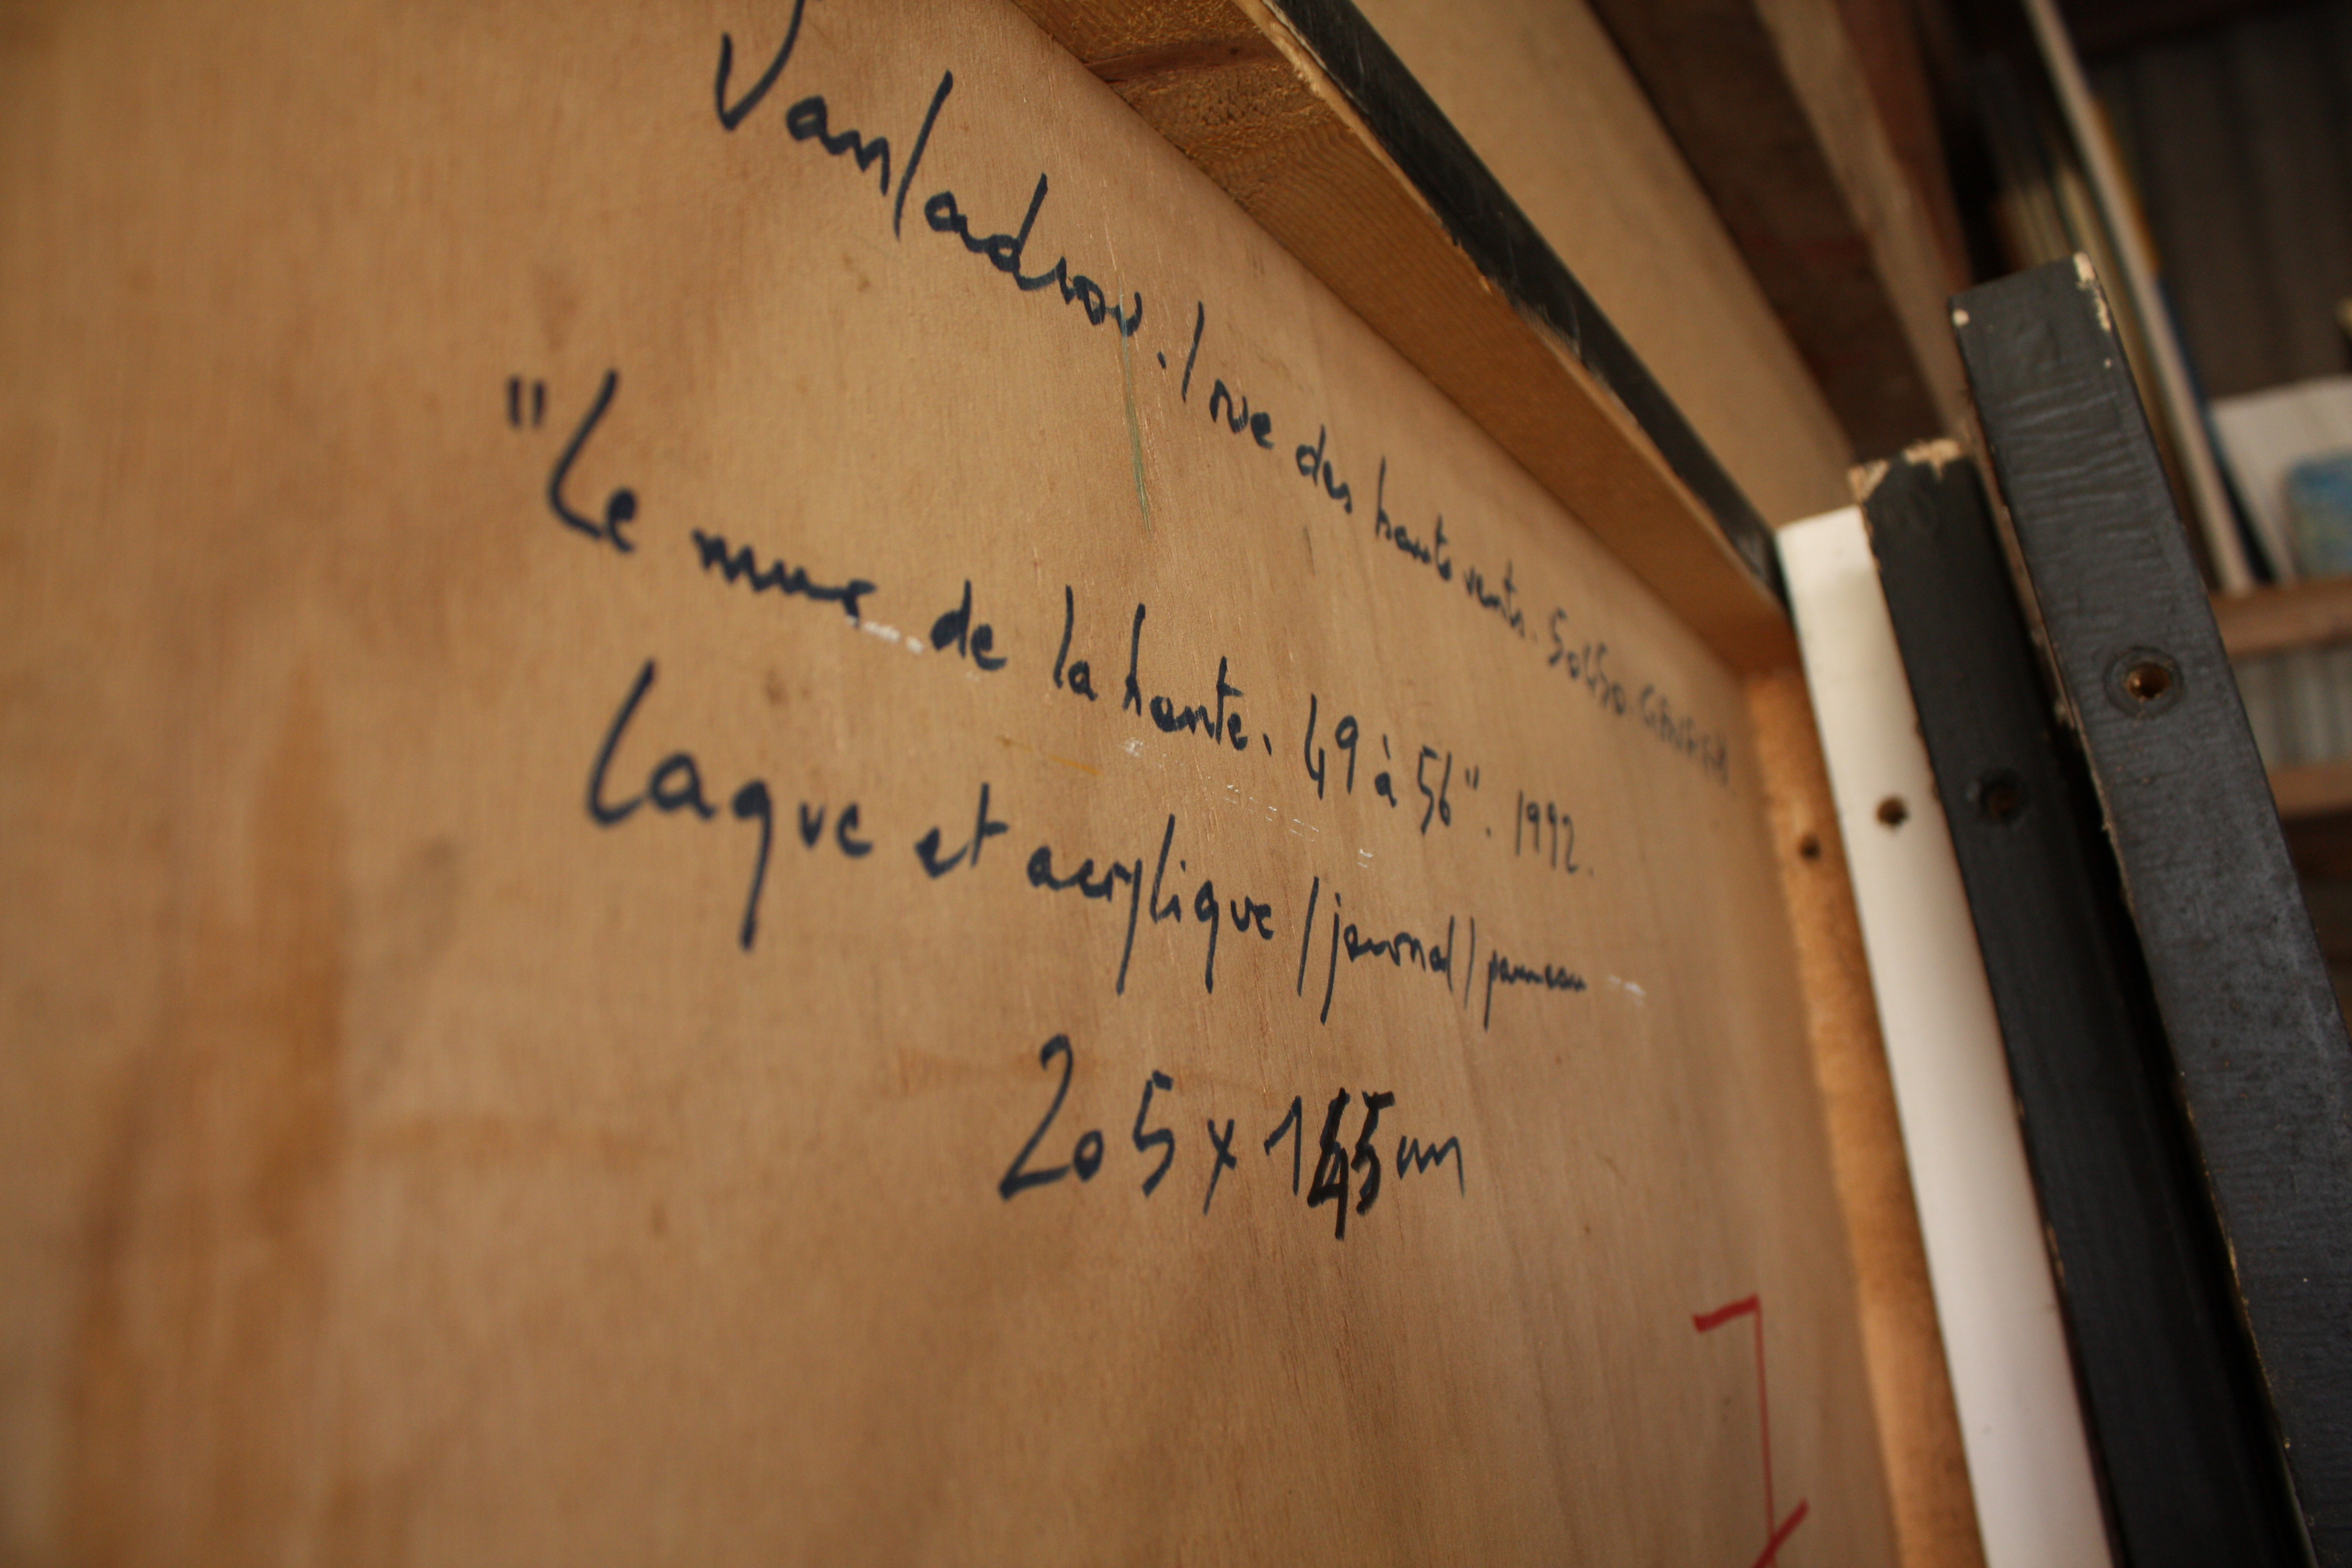 Vanladrou. 1 rue des hauts vents. 50450.
"Le mur de la honte. 49 à 56". 1992.
Laque et acrylique / journal / panneau
205 x 145 cm